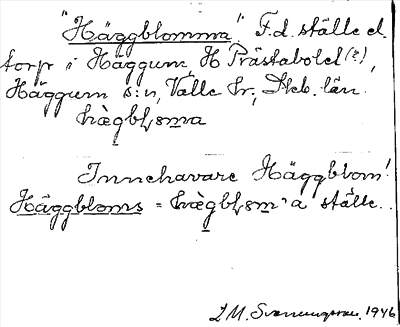 "Häggblomma". F.d. ställe el.
torp i Häggum, H Prästabolet (?),
Häggum s:n, Valle hr, Skb. län.
hæ̀gbɫo̱m̱a
Innehavare Häggblom!
Häggbloms = hæ̀gbɫo̱m̱'a ställe.
1946